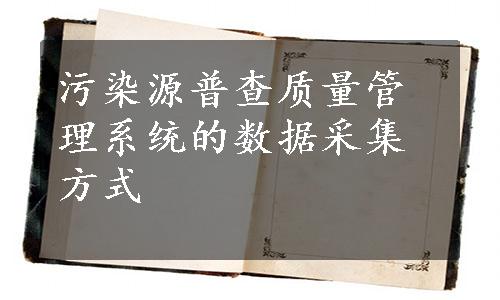 污染源普查质量管
理系统的数据采集
方式